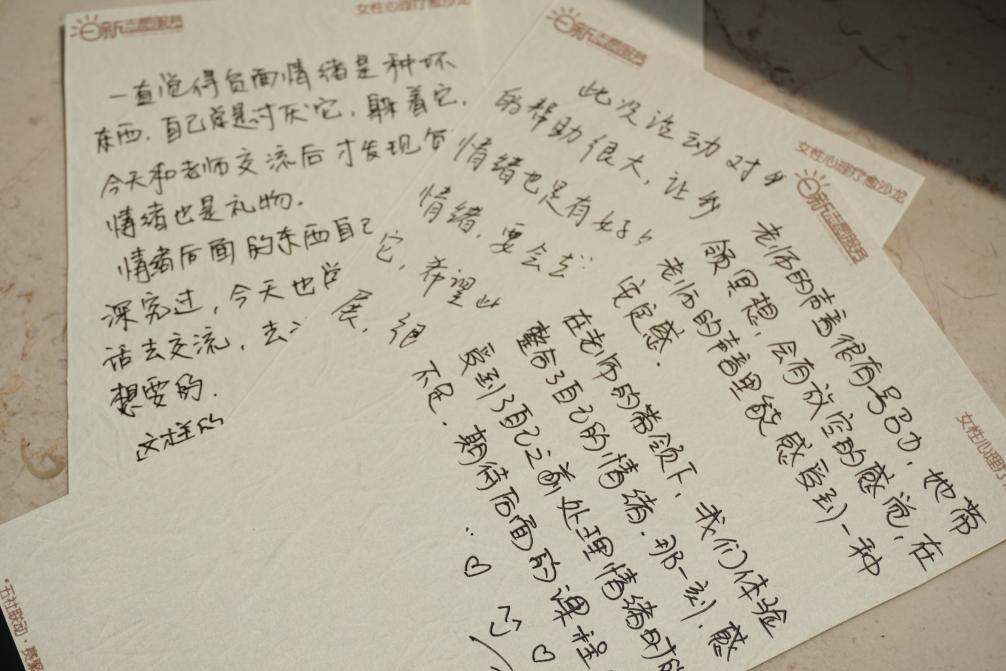 新志愿服务
女性心理疗愈沙龙
一直觉得负面情绪是种坏
东西.自己总是讨厌它,躲着它.
今天和老师交流后才发现负
情绪也是礼物.
情绪后面的东西自己
深究过,今天也
话去交流,去
想要的.
这样的
新志愿服务
女性心理疗愈沙龙
此次活动对
的帮助很大,让我
情绪也是有好
情绪.要会
它,希望此
展,很
新志愿服务
女性心理
老师的声音很有号召力,她带
领冥想,会有放空的感觉,在
老师的声音里能感受到一种
安定感.
在老师的带领下,我们体验
整合了自己的情绪.那一刻,感
受到了自己之前处理情绪时的
不足.期待后面的课程
五社联动·